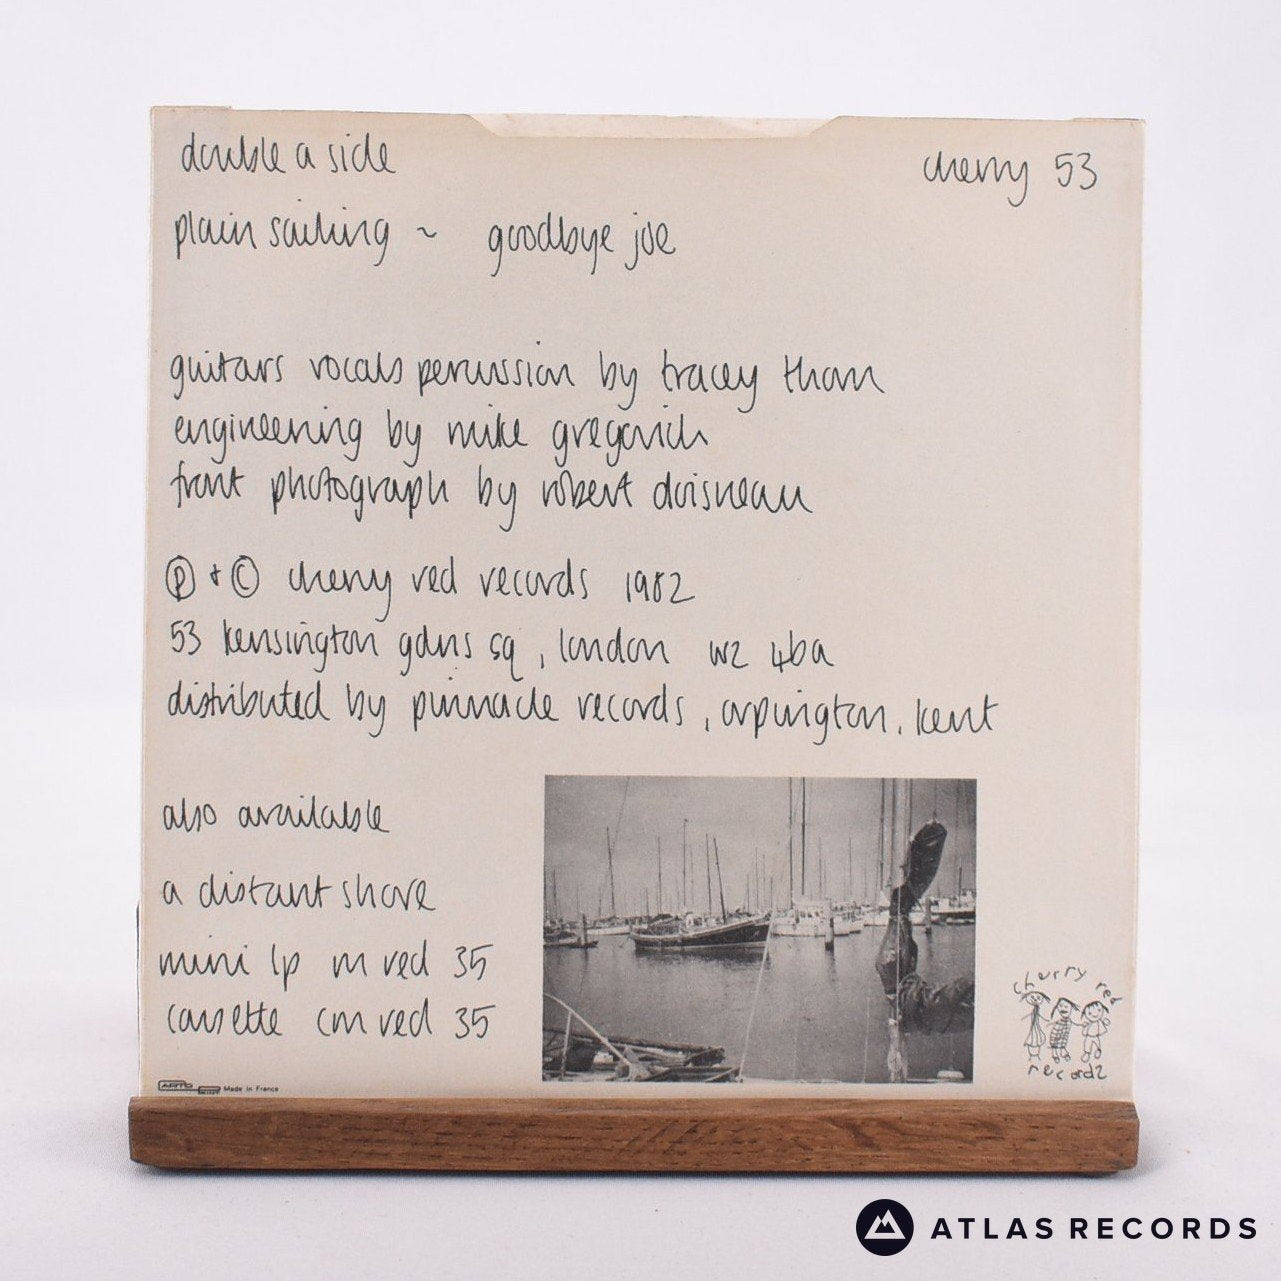 double a side
cherry 53
plain sailing ~ goodbye joe
guitars vocals percussion by tracey thorn
engineering by mike gregovich
front photograph by robert doisneau
Ⓟ + © cherry red records 1982
53 kensington gdns sq, london w2 4ba
distributed by pinnacle records, orpington, kent
also available
a distant shore
mini lp m red 35
cassette cm red 35
cherry red
records
Made in France
ATLAS RECORDS